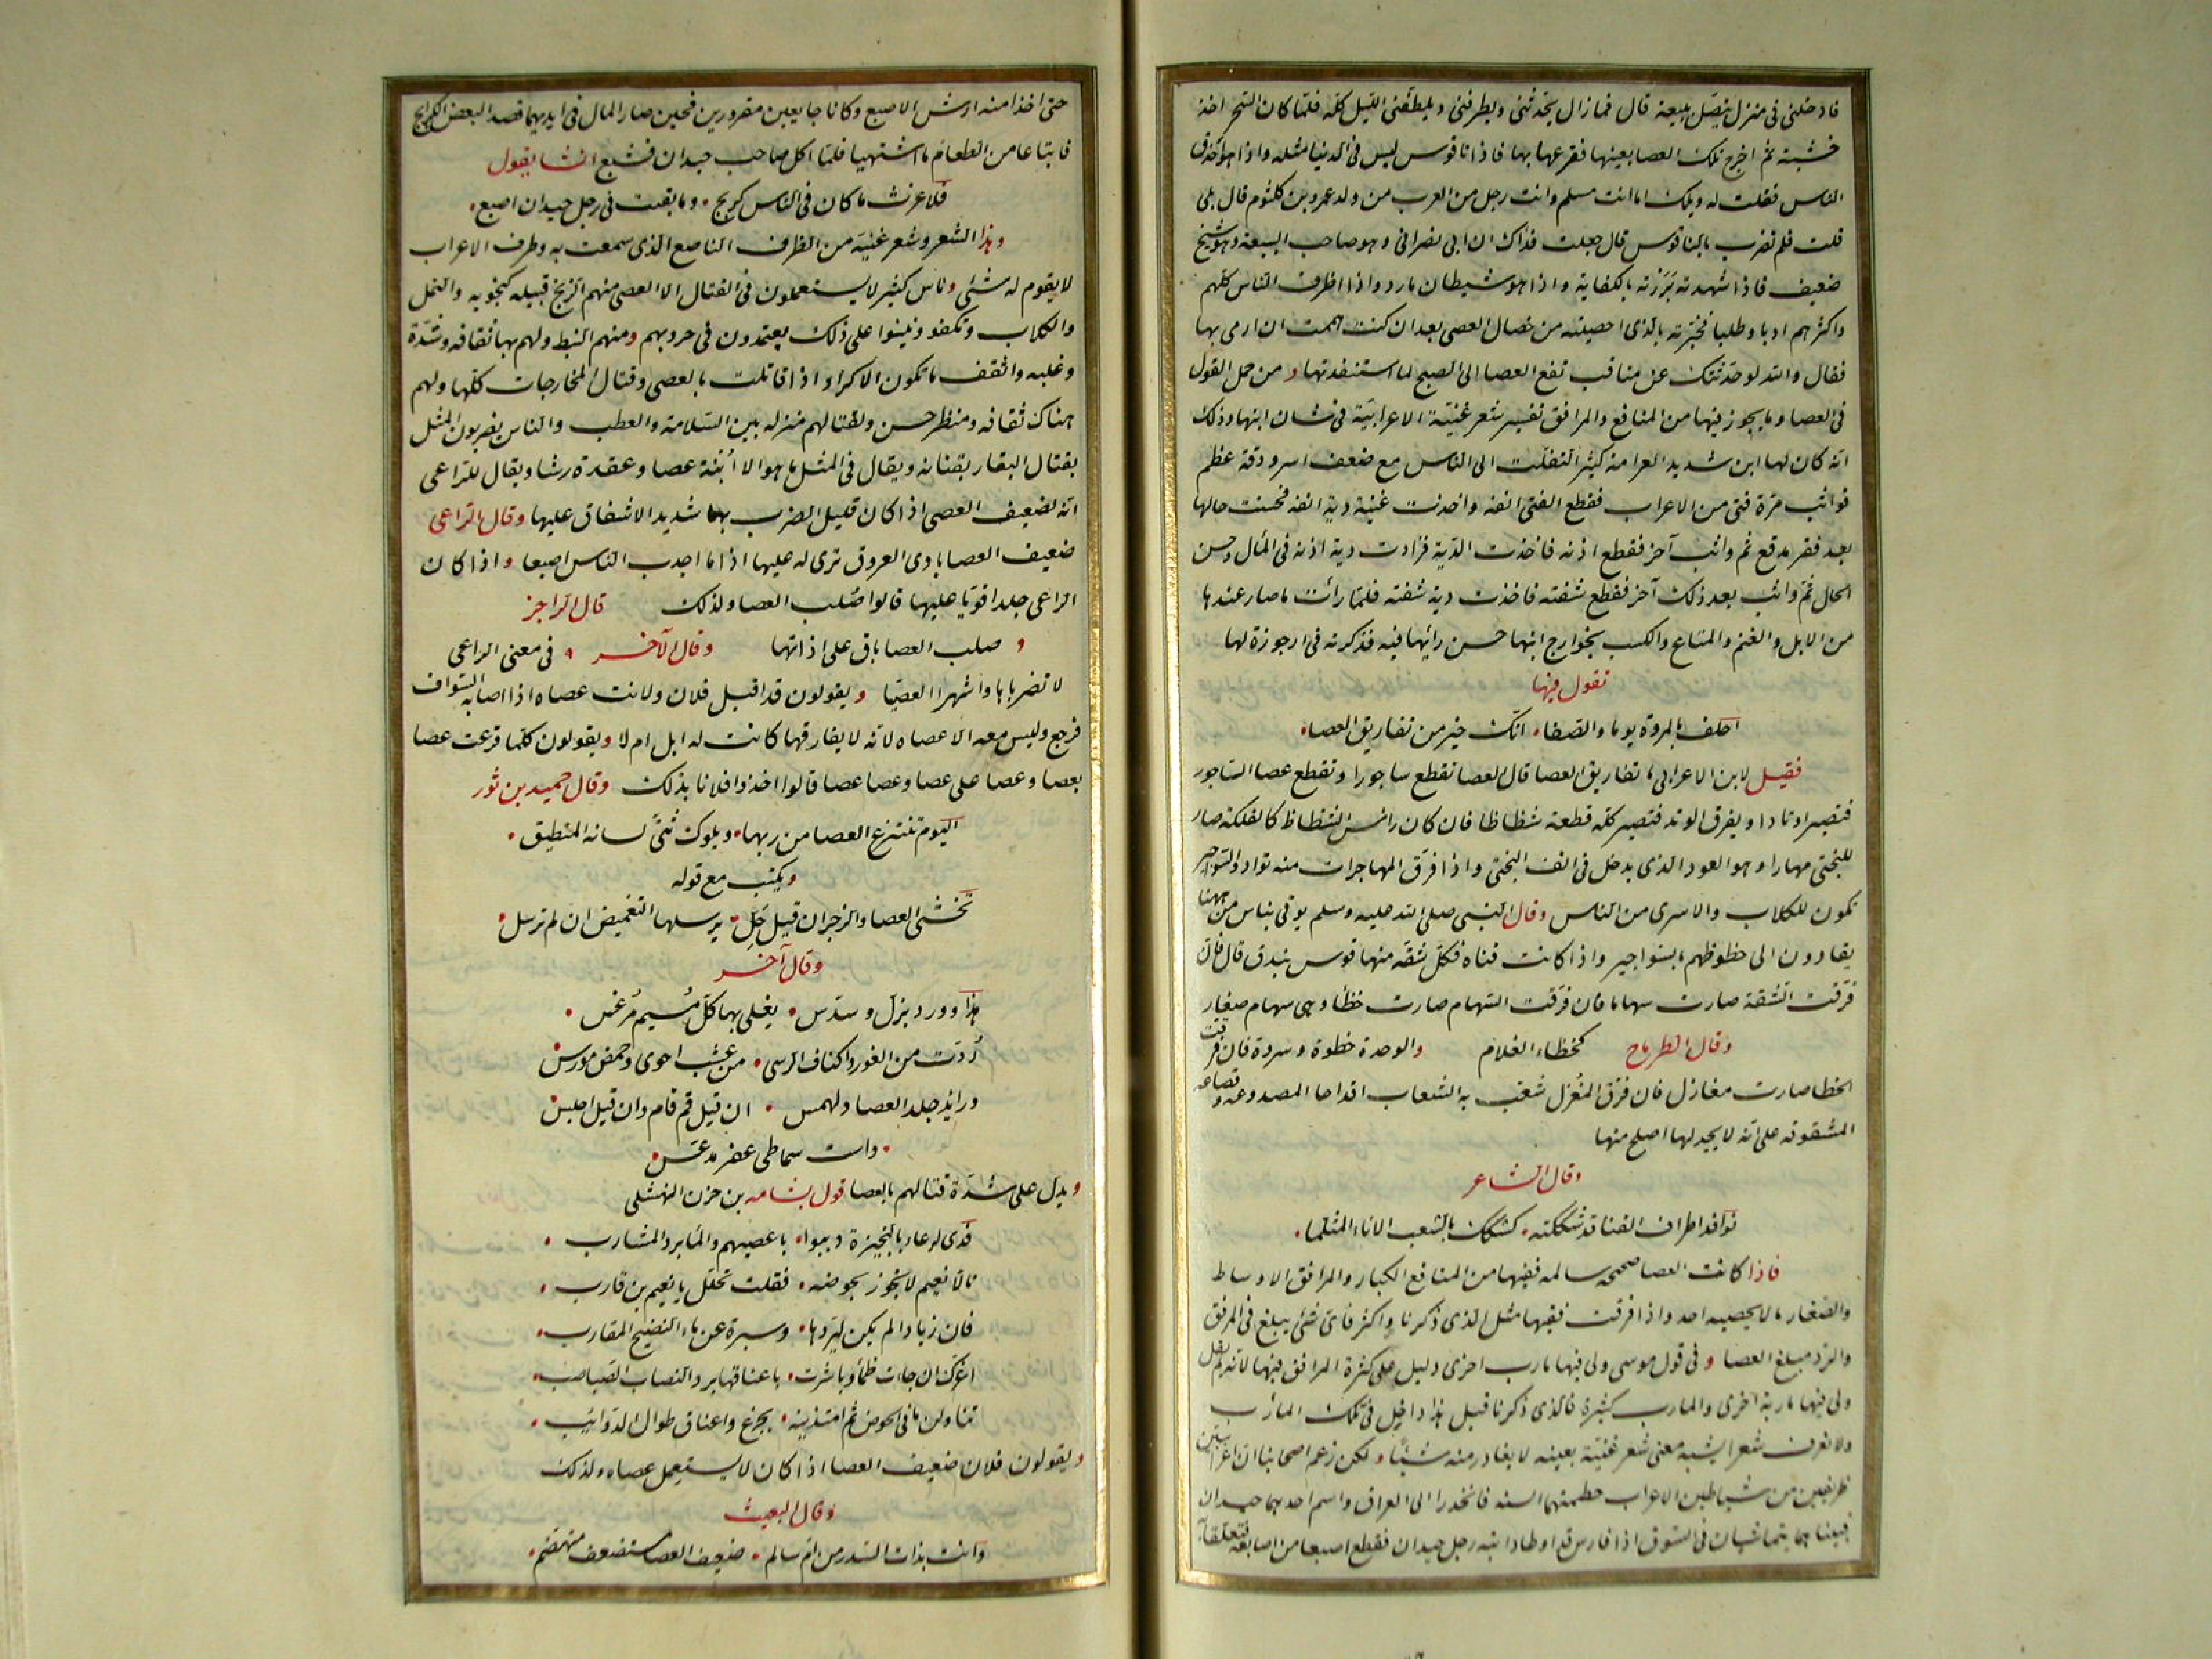 فادخلنى فى منزل يتصل ببيعة قال فما زال يحدثنى ويطرفنى ويلطفنى الليل كله فلما كان السحر اخذ
خشبة ثم اخرج تلك العصا بعينها فقرعها بها فاذا ناقوس ليس فى الدنيا مثله واذا هو احذق
الناس فقلت له ويلك اما انت مسلم وانت رجل من العرب من ولد عمرو بن كلثوم قال بلى
قلت فلم تضرب بالناقوس قال جعلت فداك ان ابى نصرانى وهو صاحب البيعة وهو شيخ
ضعيف فاذا شهدته بررته بالكفاية واذا هو شيطان مارد واذا اظرف الناس كلهم
واكثرهم ادبا وطلبا فخبرته بالذى احصيته من خصال العصى بعد ان كنت هممت ان ارمى بها
فقال والله لو حدثتك عن مناقب نفع العصا الى الصبح لما استنفدتها ومن جمل القول
فى العصا وما يجوز فيها من المنافع والمرافق تفسير شعر غنية الاعرابية فى شان ابنها وذلك
انه كان لها ابن شديد العرامة كثير التفلت الى الناس مع ضعف اسر ودقة عظم
فواثب مرة فتى من الاعراب فقطع الفتى انفه واخذت غنية دية انفه فحسنت حالها
بعد فقر مدقع ثم واثب آخر فقطع اذنه فاخذت الدية فزادت دية اذنه فى المال وحسن
الحال ثم واثب بعد ذلك آخر فقطع شفته فاخذت دية شفته فلما رأت ما صار عندها
من الابل والغنم والمتاع والكسب بجوارح ابنها حسن رأيها فيه فذكرته فى ارجوزة لها
تقول فيها
احلف بالمروة يوما والصفا انك خير من تفاريق العصا
فقيل لابن الاعرابى ما تفاريق العصا قال العصا تقطع ساجورا وتقطع عصا الساجور
فتصير اوتادا ويفرق الوتد فتصير كله قطعة شظاظا فان كان رأس الشظاظ كالفلكة صار
للبختى مهارا وهو العود الذى يدخل فى انف البختى واذا فرق المهار جاءت منه تواد والسواجير
تكون للكلاب والاسرى من الناس وقال النبى صلى الله عليه وسلم يوتى بناس من ههنا
يقادون الى حظوظهم بالسواجير واذا كانت قناة فكل شقة منها قوس بندق قال فان
فرقت الشقة صارت سهاما فان فرقت السهام صارت حظاء وهى سهام صغار
وقال الطرماح كحظاء الغلام والوحدة حظوة وسروة فان فرقت
الحظا صارت مغازل فان فرق المغزل شعب به الشعاب اقداحا المصدوعة وقصاعه
المشقوقه على انه لا يجد لها اصلح منها
وقال الشاعر
نوافذ اطراف القنا قد شككته كشكك بالشعب الاناء المثلما
فاذا كانت العصا صحيحه سالمه ففيها من المنافع الكبار والمرافق الاوساط
والصغار ما لا يحصيه احد واذا فرقت ففيها مثل الذى ذكرنا واكثر فاى شئ يبلغ فى المرفق
والرد مبلغ العصا وفى قول موسى ولى فيها مارب اخرى دليل على كثرة المرافق فيها لانه لم يقل
ولى فيها ماربة اخرى والمارب كثيرة فالذى ذكرنا قبل هذا داخل فى تلك المارب
ولا نعرف شعرا يشبه معنى شعر غنية بعينه لا يغادر منه شيئا ولكن زعم اصحابنا ان اعرابيين
ظريفين من شياطين الاعراب حطمتهما السنه فانحدرا الى العراق واسم احدهما حيدان
فبينا هما يتماشيان فى السوق اذا فارس قد اوطأ دابته رجل حيدان فقطع اصبعا من اصابعه فتعلقا به
حتى اخذا منه ارش الاصبع وكانا جايعين مقرورين فحين صار المال فى ايديهما قصدا لبعض الكرابج
فابتاعا من الطعام ما اشتهيا فلما اكل صاحب حيدان فشبع انشا يقول
فلا غرث ما كان فى الناس كربج وما بقيت فى رجل حيدان اصبع
وهذا الشعر وشعر غنية من الظرف الناصع الذى سمعت به وظرف الاعراب
لا يقوم له شئ وناس كثير لا يستعملون فى القتال الا العصى منهم الزنج قبيله كنجويه والنمل
والكلاب وتكفو وتلبنوا على ذلك يعتمدون فى حروبهم ومنهم النبط ولهم بها ثقافه وشدة
وغلبه واثقف ما تكون الاكراد اذا قاتلت بالعصى وقتال المخارجات كلها ولهم
هناك ثقافه ومنظر حسن ولقتالهم منزله بين السلامة والعطب والناس يضربون المثل
بقتال البقار بقناته ويقال فى المثل ما هو الا ابنة عصا وعقدة رشا ويقال للراعى
انه لضعيف العصى اذا كان قليل الضرب بها شديد الاشفاق عليها وقال الراعى
ضعيف العصا بادى العروق ترى له عليها اذا ما اجدب الناس اصبعا واذا كان
الراعى جلدا قويا عليها قالوا صلب العصا ولذلك قال الراجز
صلب العصا باق على اذاتها وقال الآخر فى معنى الراعى
لا تضرباها واشهرا العصيا ويقولون قد اقبل فلان ولانت عصاه اذا اصابه السواف
فرجع وليس معه الا عصاه لانه لا يفارقها كانت له ابل ام لا ويقولون كلما قرعت عصا
بعصا وعصا على عصا وعصا عصا قالوا اخذوا فلانا بذلك وقال حميد بن ثور
اليوم تنتزع العصا من ربها ويلوك ثنى لسانه المنطيق
ويكتب مع قوله
تخشى العصا والزجر ان قيل حل يرسلها التغميض ان لم ترسل
وقال آخر
هذا وورد بزل وسدس يغلى بها كل مسيم مرغس
ردت من الغور واكناف الرسى من عشب احوى وحمض مورس
وذائد جلد العصا دلهمس ان قيل قم قام وان قيل اجلس
داست سماطى عفر مدعس
ويدل على شدة قتالهم بالعصا قول بشامه بن حزن النهشلى
فدى لرعاء بالنجيرة ذببوا باعصيهم والماء برد المشارب
تألا نعيم لا نجوز بحوضه فقلت تحلل يا نعيم بن قارب
فان زيادا لم يكن ليردها وسبرة عن ماء النضيح المقارب
اغرك ان جاءت ظمأ وباشرت باعناقها برد النصاب الصباصب
تناولن ما فى الحوض ثم امتذينه بجرع واعناق طوال الذوائب
ويقولون فلان ضعيف العصا اذا كان لا يستعمل عصاه ولذلك
وقال البعيث
وانت بذات السدر من ام سالم ضعيف العصا مستضعف متهضم